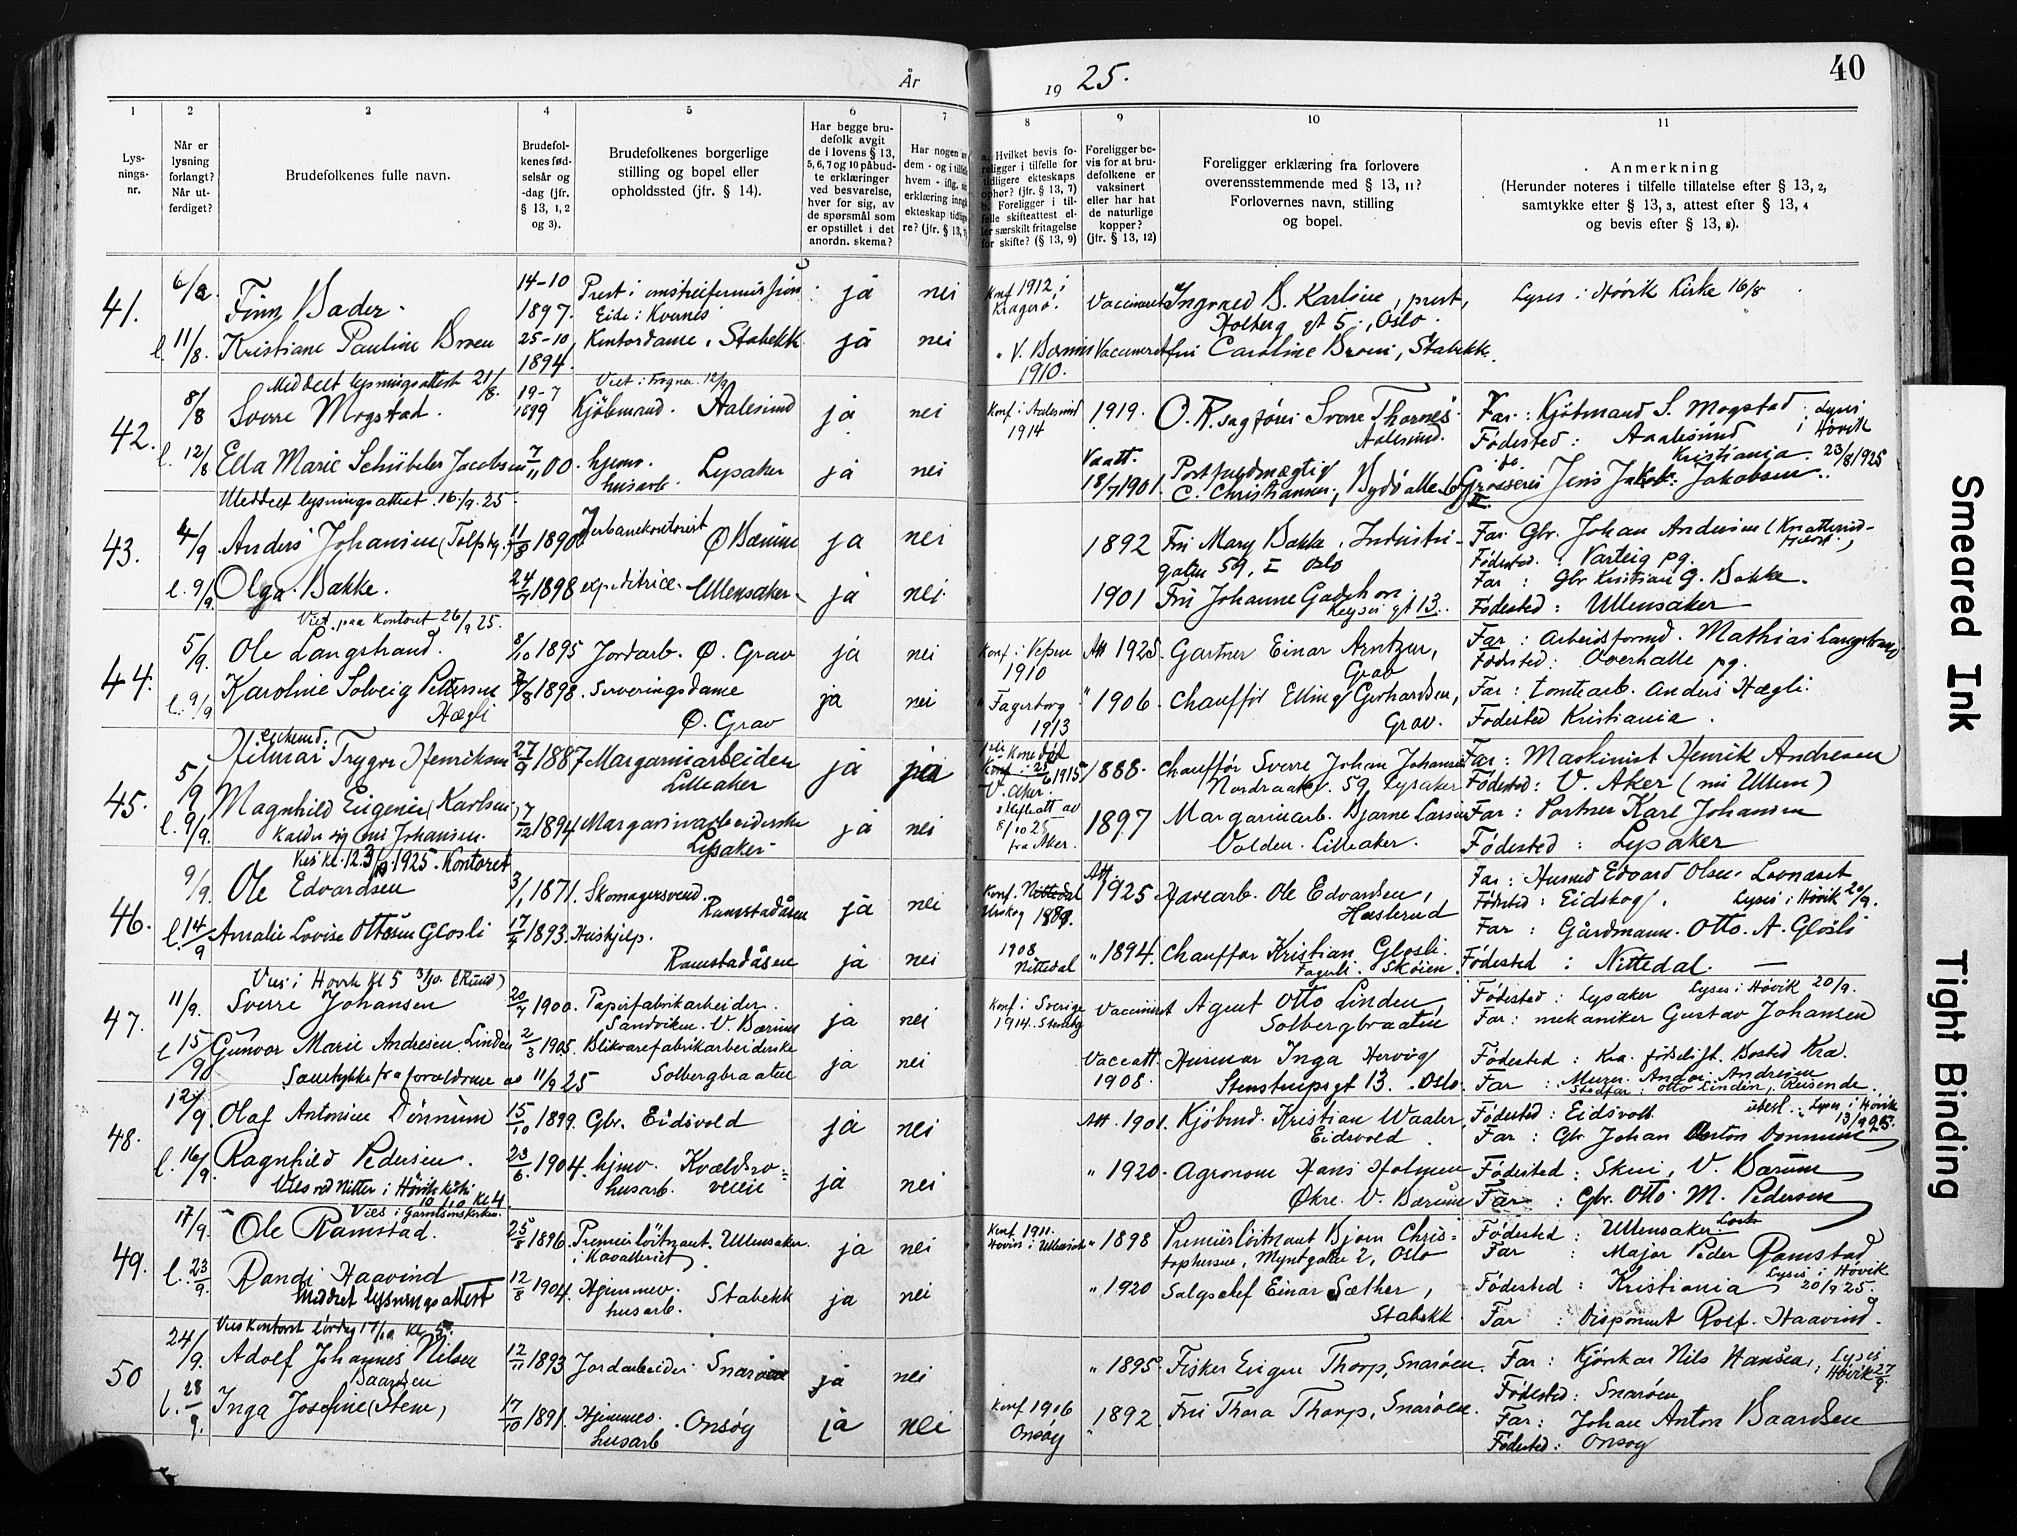 År 19 25.
40
1 2 3 4 5 6 7 8 9 10 11
Lys-
nings-
nr.
Når er
lysning
forlangt?
Når ut-
ferdiget?
Brudefolkenes fulle navn.
Brudefol-
kenes fød-
selsår og
-dag (jfr.
§ 13, 1, 2
og 3).
Brudefolkenes borgerlige
stilling og bopel eller
opholdssted (jfr. § 14).
Har begge bru-
defolk avgit
de i lovens § 13,
5, 6, 7 og 10 påbud-
te erklæringer
ved besvarelse,
hver for sig, av
de spørsmål som
er opstillet i det
anordn. skema?
Har nogen av
dem - og i tilfelle
hvem - iflg. sin
erklæring inngå
ekteskap tidlige
re? (jfr. § 13,
a. Hvilket bevis fo-
religger i tilfelle for
tidligere ekteskaps
ophør? (jfr. § 13, 7)
b. Foreligger i til-
felle skifteattest el-
ler særskilt fritagelse
for skifte? (§ 13, 9)
Foreligger be-
vis for at bru-
defolkene er
vaksinert
eller har hat
de naturlige
kopper?
(jfr. § 13, 12)
Foreligger erklæring fra forlovere
overensstemmende med § 13, 11?
Forlovernes navn, stilling
og bopel.
Anmerkning
(Herunder noteres i tilfelle tillatelse efter § 13, 2,
samtykke efter § 13, 3, attest efter § 13, 4
og bevis efter § 13, 8).
41. Finn Bader. 14-10 1897. ja nei Konf 1912 i Kragerø. Vaccineret Ingvard B. Karlsen, prest, Holberg gt 5., Oslo. Lyses i Høvik Kirke 16/8
Eide i Kvernes
l. 11/8. Kristiane Pauline Broen 25-10 1894. Kontordame, Stabekk ja nei V. Bærum 1910. Vaccineret fru Caroline Broen, Stabekk.
Meddelt lysningsattest 21/8. Viet i Frogner 12/9
42. 8/8 Sverre Mogstad. 19-7 1899 Kjöbmand. Aalesund ja nei Konf. i Aalesund 1914 1919. O.R. sagfører Sverre Thornes. Aalesund. Far: Kjöbmand S. Mogstad
Födested: Aalesund Lyses i Høvik 23/8 1925
l. 12/8 Ella Marie Schübeler Jacobsen 7/11 00. hjemv. husarb. Lysaker ja nei Vaatt. 18/7 1901. Postfuldmægtig C. Christiansen, Bydö alle Kristiania. Grosserer Jens Jakob Jakobsen.
Meddelt lysningsattest 16/9. 25.
43. 4/9 Anders Johansen 11/8 1890 Jerbanekontorist Ø Bærum ja nei 1892 Fru Mary Bakke, Industri-
gaten 59, I Oslo Far Gbr. Johan Andersen
Födested: Varteig pg.
l. 9/9 Olga Bakke. 1898 expeditrice. Ullensaker ja nei 1901 Fru Johanne Gadehorn. Keysers gt 13. Far: Gbr Kristian G. Bakke.
Födested: Ullensaker
Viet paa Kontoret 26/9 25.
44. 5/9. Ole Langstrand. 8/10 1895 Jordarb. Ø. Grav ja nei Konf. i Vefsen 1910 Att 1925. Gartner Einar Arntzen, Grav Far: Arbeidsformd. Mathias Langstrand
Födested: Overhalle pg.
l. 9/9 Karoline Solveig Pettersen Hægli 1898. Serveringsdame Ø. Grav ja nei Fagerborg 1913 " 1906. Chauffør Elling Gerhardsen, Grav. Far: tomtearb. Anders Hægli.
Födested Kristiania.
45. 5/9 Hilmar Trygve Henriksen 27/9 1887 Margarinarbeider Lilleaker ja ja 1888. Chauffør Sverre Johan Johansen Nordraaks v. 59 Lysaker Far: Maskinist Henrik Andresen
Födested: V. Aker (nu Ullern)
l. 9/9. Magnhild Eugenie (Karlsen) kalder sig nu Johansen. 7/12 1894 Margarinarbeiderske Lysaker ja nei 1897 Margarinarb. Bjarne Larsen Volden. Lilleaker. Far: Portner Karl Johansen
Födested: Lysaker
46. 9/9. Ole Edvardsen 3/1 1871. Skomagersvend. Ramstadåsen ja nei Konf. Urskog Att. 1925 Havearb. Ole Edvardsen, Haslerud Far: Husmd Edvard Olsen
Födested: Eidskog. Lyses i Høvik 20/9.
l. 14/9 Amalie Lovise Ottesen Glosli 17/4 1893. Hushjelp. Ramstadåsen ja nei 1908 Nittedal " 1894. Chauffør Kristian Glosli. Fagerli. Skøien. Far: Gårdmann Otto. A. Glösli
Födested: Nittedal.
Vies i Høvik kl 5 3/10.
47. 11/9. Sverre Johansen 20/7 1900. Papirfabrikarbeider. Sandviken. V. Bærum ja nei Konf. i Sverige 1914. Vaccineret Agent Otto Linden Solbergbraaten Födested: Lysaker Lyses i Høvik 20/9.
Far: mekaniker Gustav Johansen
l 15/9 Gunvor Marie Andresen Linden 2/3 1905. Blikvarefabrikarbeiderske Solbergbraaten ja nei Vaccatt. 1908. Husmor Inga Hervig Stenstrupsgt 13. Oslo. Födested: Kra. Bosted Kra.
Samtykke fra foreldrene av 11/9 25 Far: Murer Andor Andresen
Stedfar: Otto Linden, Reisende.
48. 12/9 Olaf Antonius Dönnum 15/10 1899. Gbr. Eidsvold ja nei Att. 1901. Kjöbmd. Kristian Waaler, Eidsvold. Födested: Eidsvoll Lyses i Høvik 13/9 25.
Far: Gbr Johan Anton Dönnum
l. 16/9 Ragnhild Pedersen. 23/6 1904. hjmv. husarb. Kvældsro-veien ja nei " 1920. Agronom Hans Holmen Økre V. Bærum Födested: Skui, V. Bærum
Far: Gbr. Otto M. Pedersen
Vies i Garnisonskirken.
49. 17/9. Ole Ramstad. 25/8 1896. Premierlöitnant i Kavalleriet. Ullensaker ja nei Konf. 1911. Hovin i Ullensaker " 1898 Premierlöitnant Bjørn Chris-
tophersen, Myntgaten 2, Oslo Födested: Ullensaker
Far: Major Peder Ramstad
l. 23/9. Randi Haavind 12/8 1904. Hjemmev. husarb. Stabekk ja nei " 1920 Salgschef Einar Sæther, Stabekk Födested: Kristiania Lyses i Høvik 20/9 25.
Meddelt lysningsattest Far: Disponent Rolf. Haavind.
Vies kontoret lördag 17/10 kl. 5.
50 24/9. Adolf Johannes Nilsen 12/11 1893 Jordarbeider Snarøen ja nei " 1895 Fisker Eugen Thorp, Snarøen. Far: Nils Hansen, Lyses i Høvik 27/9.
Födested: Snarøen
l. 28/9. Inga Josefine (Stene) Baardsen 17/10 1891. Hjemmev. husarb. Onsøy ja nei Konf 1906 Onsøy 1892. Fru Thora Thorp, Snarøen. Far: Johan Anton Baardsen
Födested: Onsøy
Smeared Ink
Tight Binding